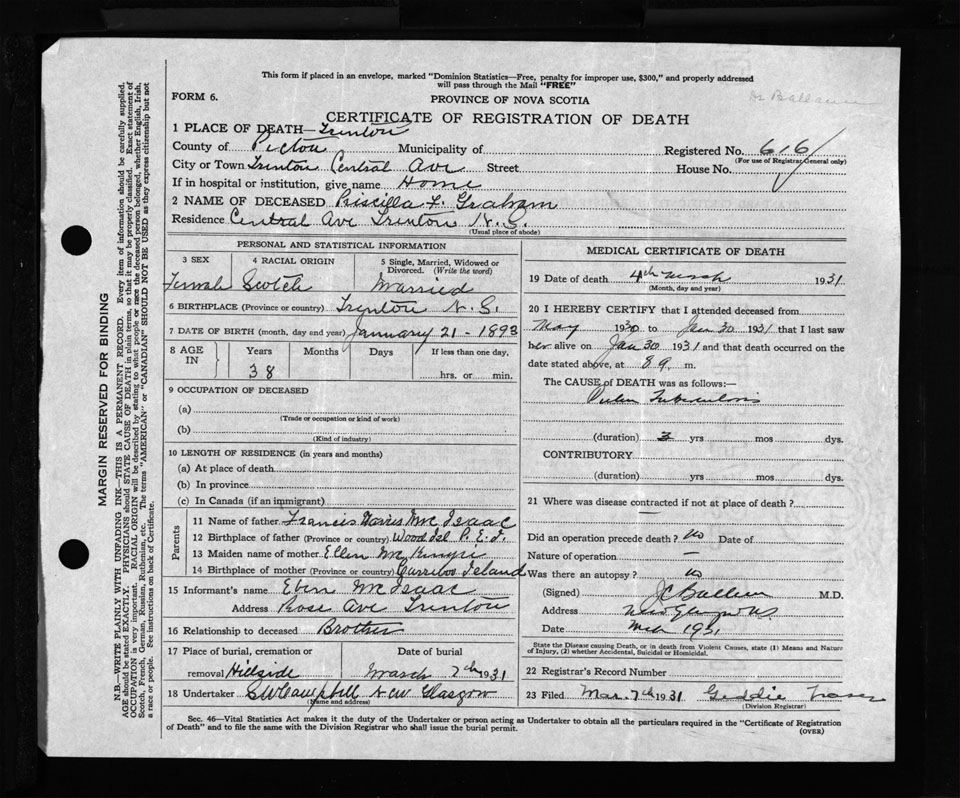 This form if placed in an envelope, marked "Dominion Statistics—Free, penalty for improper use, $300," and properly addressed
will pass through the Mail "FREE"
FORM 6.
PROVINCE OF NOVA SCOTIA
CERTIFICATE OF REGISTRATION OF DEATH
1 PLACE OF DEATH— Trenton
County of Pictou Municipality of Registered No. 616
(For use of Registrar General only)
City or Town Trenton Central Ave Street House No.
If in hospital or institution, give name Home
2 NAME OF DECEASED Priscilla F. Graham
Residence Central Ave Trenton N.S.
(Usual place of abode)
PERSONAL AND STATISTICAL INFORMATION
3 SEX 4 RACIAL ORIGIN 5 Single, Married, Widowed or Divorced. (Write the word)
Female Scotch Married
6 BIRTHPLACE (Province or country) Trenton N.S.
7 DATE OF BIRTH (month, day and year) January 21 - 1893
8 AGE IN Years Months Days If less than one day,
38 hrs. or min.
9 OCCUPATION OF DECEASED
(a)
(Trade or occupation or kind of work)
(b)
(Kind of industry)
10 LENGTH OF RESIDENCE (in years and months)
(a) At place of death
(b) In province
(c) In Canada (if an immigrant)
Parents
11 Name of father Francis Mc Isaac
12 Birthplace of father (Province or country) Wood Isl P.E.I.
13 Maiden name of mother Ellen
14 Birthplace of mother (Province or country) Carriboo Island
15 Informant's name Eben Mc Isaac
Address Rose Ave Trenton
16 Relationship to deceased Brother
17 Place of burial, cremation or Date of burial
removal Hillside March 7th 1931
18 Undertaker SW Campbell New Glasgow
(Name and address)
MEDICAL CERTIFICATE OF DEATH
19 Date of death 4th March 1931
(Month, day and year)
20 I HEREBY CERTIFY that I attended deceased from
May 1930 to Jan 30 1931 that I last saw
her alive on Jan 30 1931 and that death occurred on the
date stated above, at 8 a. m.
The CAUSE of DEATH was as follows:—
Pulm Tuberculosis
(duration) yrs mos dys.
CONTRIBUTORY
(duration) yrs mos dys.
21 Where was disease contracted if not at place of death?
Did an operation precede death? no Date of
Nature of operation —
Was there an autopsy? no
(Signed) M.D.
Address New Glasgow NS.
Date Mch 1931
State the Disease causing Death, or in death from Violent Causes, state (1) Means and Nature
of Injury, (2) whether Accidental, Suicidal or Homicidal.
22 Registrar's Record Number
23 Filed Mar. 7th 1931 Geddie Fraser
(Division Registrar)
Sec. 46—Vital Statistics Act makes it the duty of the Undertaker or person acting as Undertaker to obtain all the particulars required in the "Certificate of Registration
of Death" and to file the same with the Division Registrar who shall issue the burial permit.
(OVER)
MARGIN RESERVED FOR BINDING
N.B.—WRITE PLAINLY WITH UNFADING INK—THIS IS A PERMANENT RECORD. Every item of information should be carefully supplied.
AGE should be stated EXACTLY. PHYSICIANS should STATE CAUSE OF DEATH in plain terms, so that it may be properly classified. Exact statement of
OCCUPATION is very important. RACIAL ORIGIN will be described by stating to what people or race the deceased person belonged, whether English, Irish,
Scotch, French, German, Russian, Ruthenian, etc. The terms "AMERICAN" or "CANADIAN" SHOULD NOT BE USED as they express citizenship but not
a race or people. See instructions on back of Certificate.